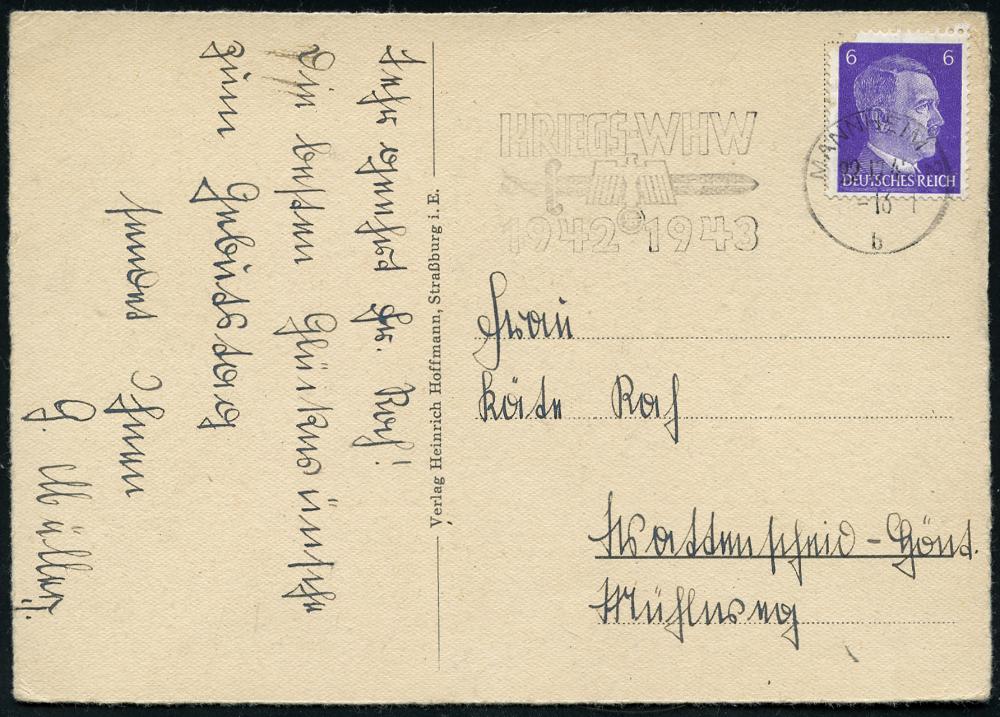 Sehr geehrte Fr. Rah!
Die besten Glückwünsche
zum Geburtstag
sendet Ihnen
G. Müller
Verlag Heinrich Hoffmann, Straßburg i. E.
KRIEGS-WHW
1942 1943
6 6
DEUTSCHES REICH
MANNHEIM
b
Frau
Käte Rah
Wattenscheid-Hönt.
Mühlweg